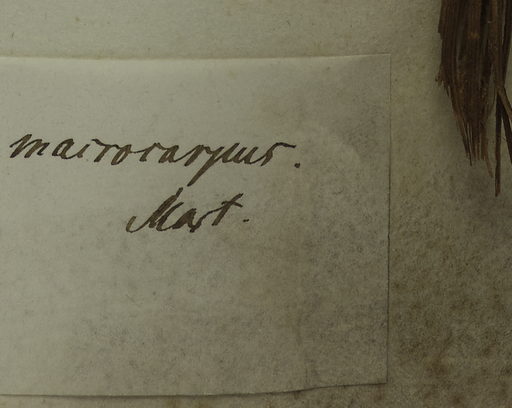 macrocarpus.
Mart.